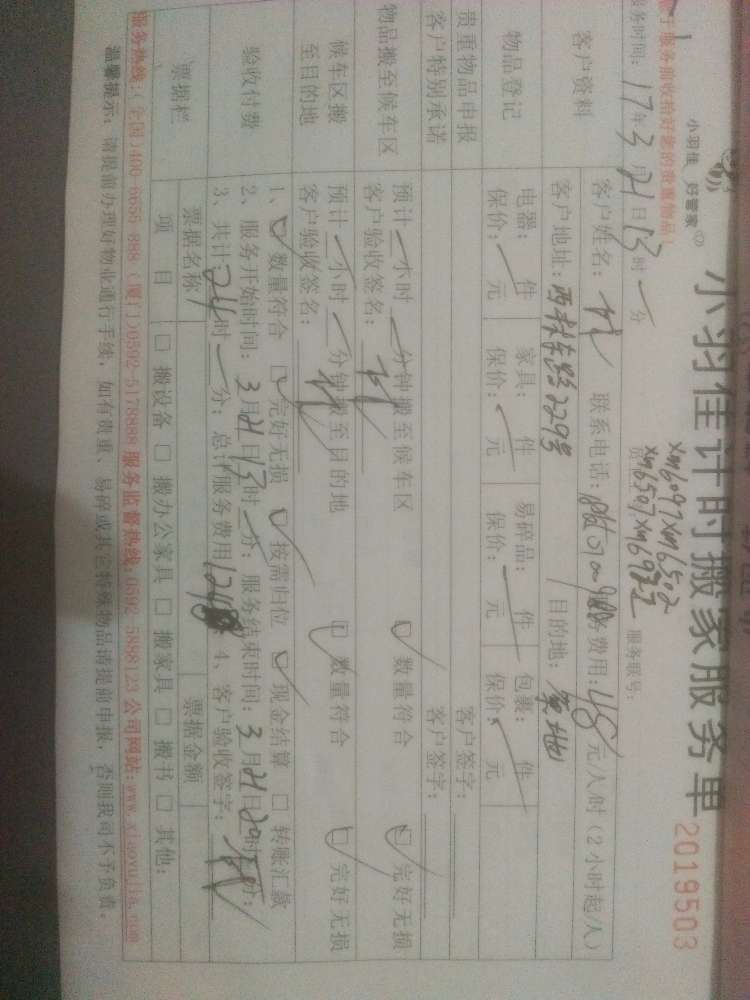 小羽佳 好管家
小羽佳计时搬家服务单
2019503
服务时间：17年3月21日13时一分
服务联号：
客户资料
客户姓名：
联系电话：
费用：48元/人/时（2小时起/人）
客户地址：西林东路229号
目的地：
物品登记
电器：一件 家具：一件 易碎品：一件 包裹：一件
保价：元 保价：元 保价：元 保价：元
贵重物品申报
客户签字：
客户特别承诺
客户签字：
物品搬至候车区
预计一小时一分钟搬至候车区 数量符合 完好无损
客户验收签名：
候车区搬至目的地
预计一小时一分钟搬至目的地 数量符合 完好无损
客户验收签名：
验收付费
1、数量符合 完好无损 按需归位 现金结算 转账汇款
2、服务开始时间：3月21日13时一分；服务结束时间：3月21日
3、共计24时一分；总计服务费用 4、客户验收签字：
票据栏
票据名称 票据金额
项目 搬设备 搬办公家具 搬家具 搬书 其他：
服务热线：(全国)400-6658-888 (厦门)0592-5178888 服务监督热线：0592-5888123 公司网站：www.xiaoyujia.com
温馨提示：请提前办理好物业通行手续，如有贵重、易碎或其它特殊物品请提前申报，否则我司不予负责。